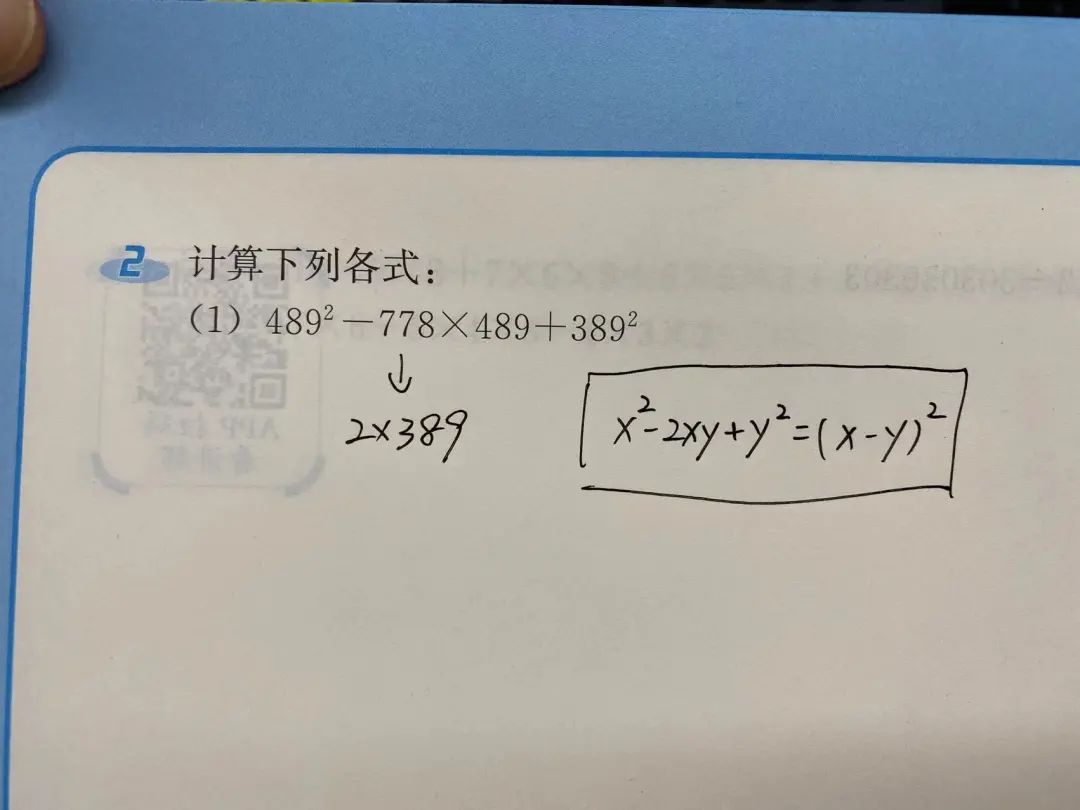 2 计算下列各式：
（1）489²－778×489＋389²
↓
2×389
x²-2xy+y²=(x-y)²